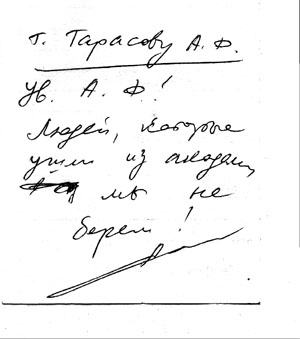 т. Тарасову А.Ф.
Ув. А. Ф!
Людей, которые
ушли из академ,
мы не
берем!